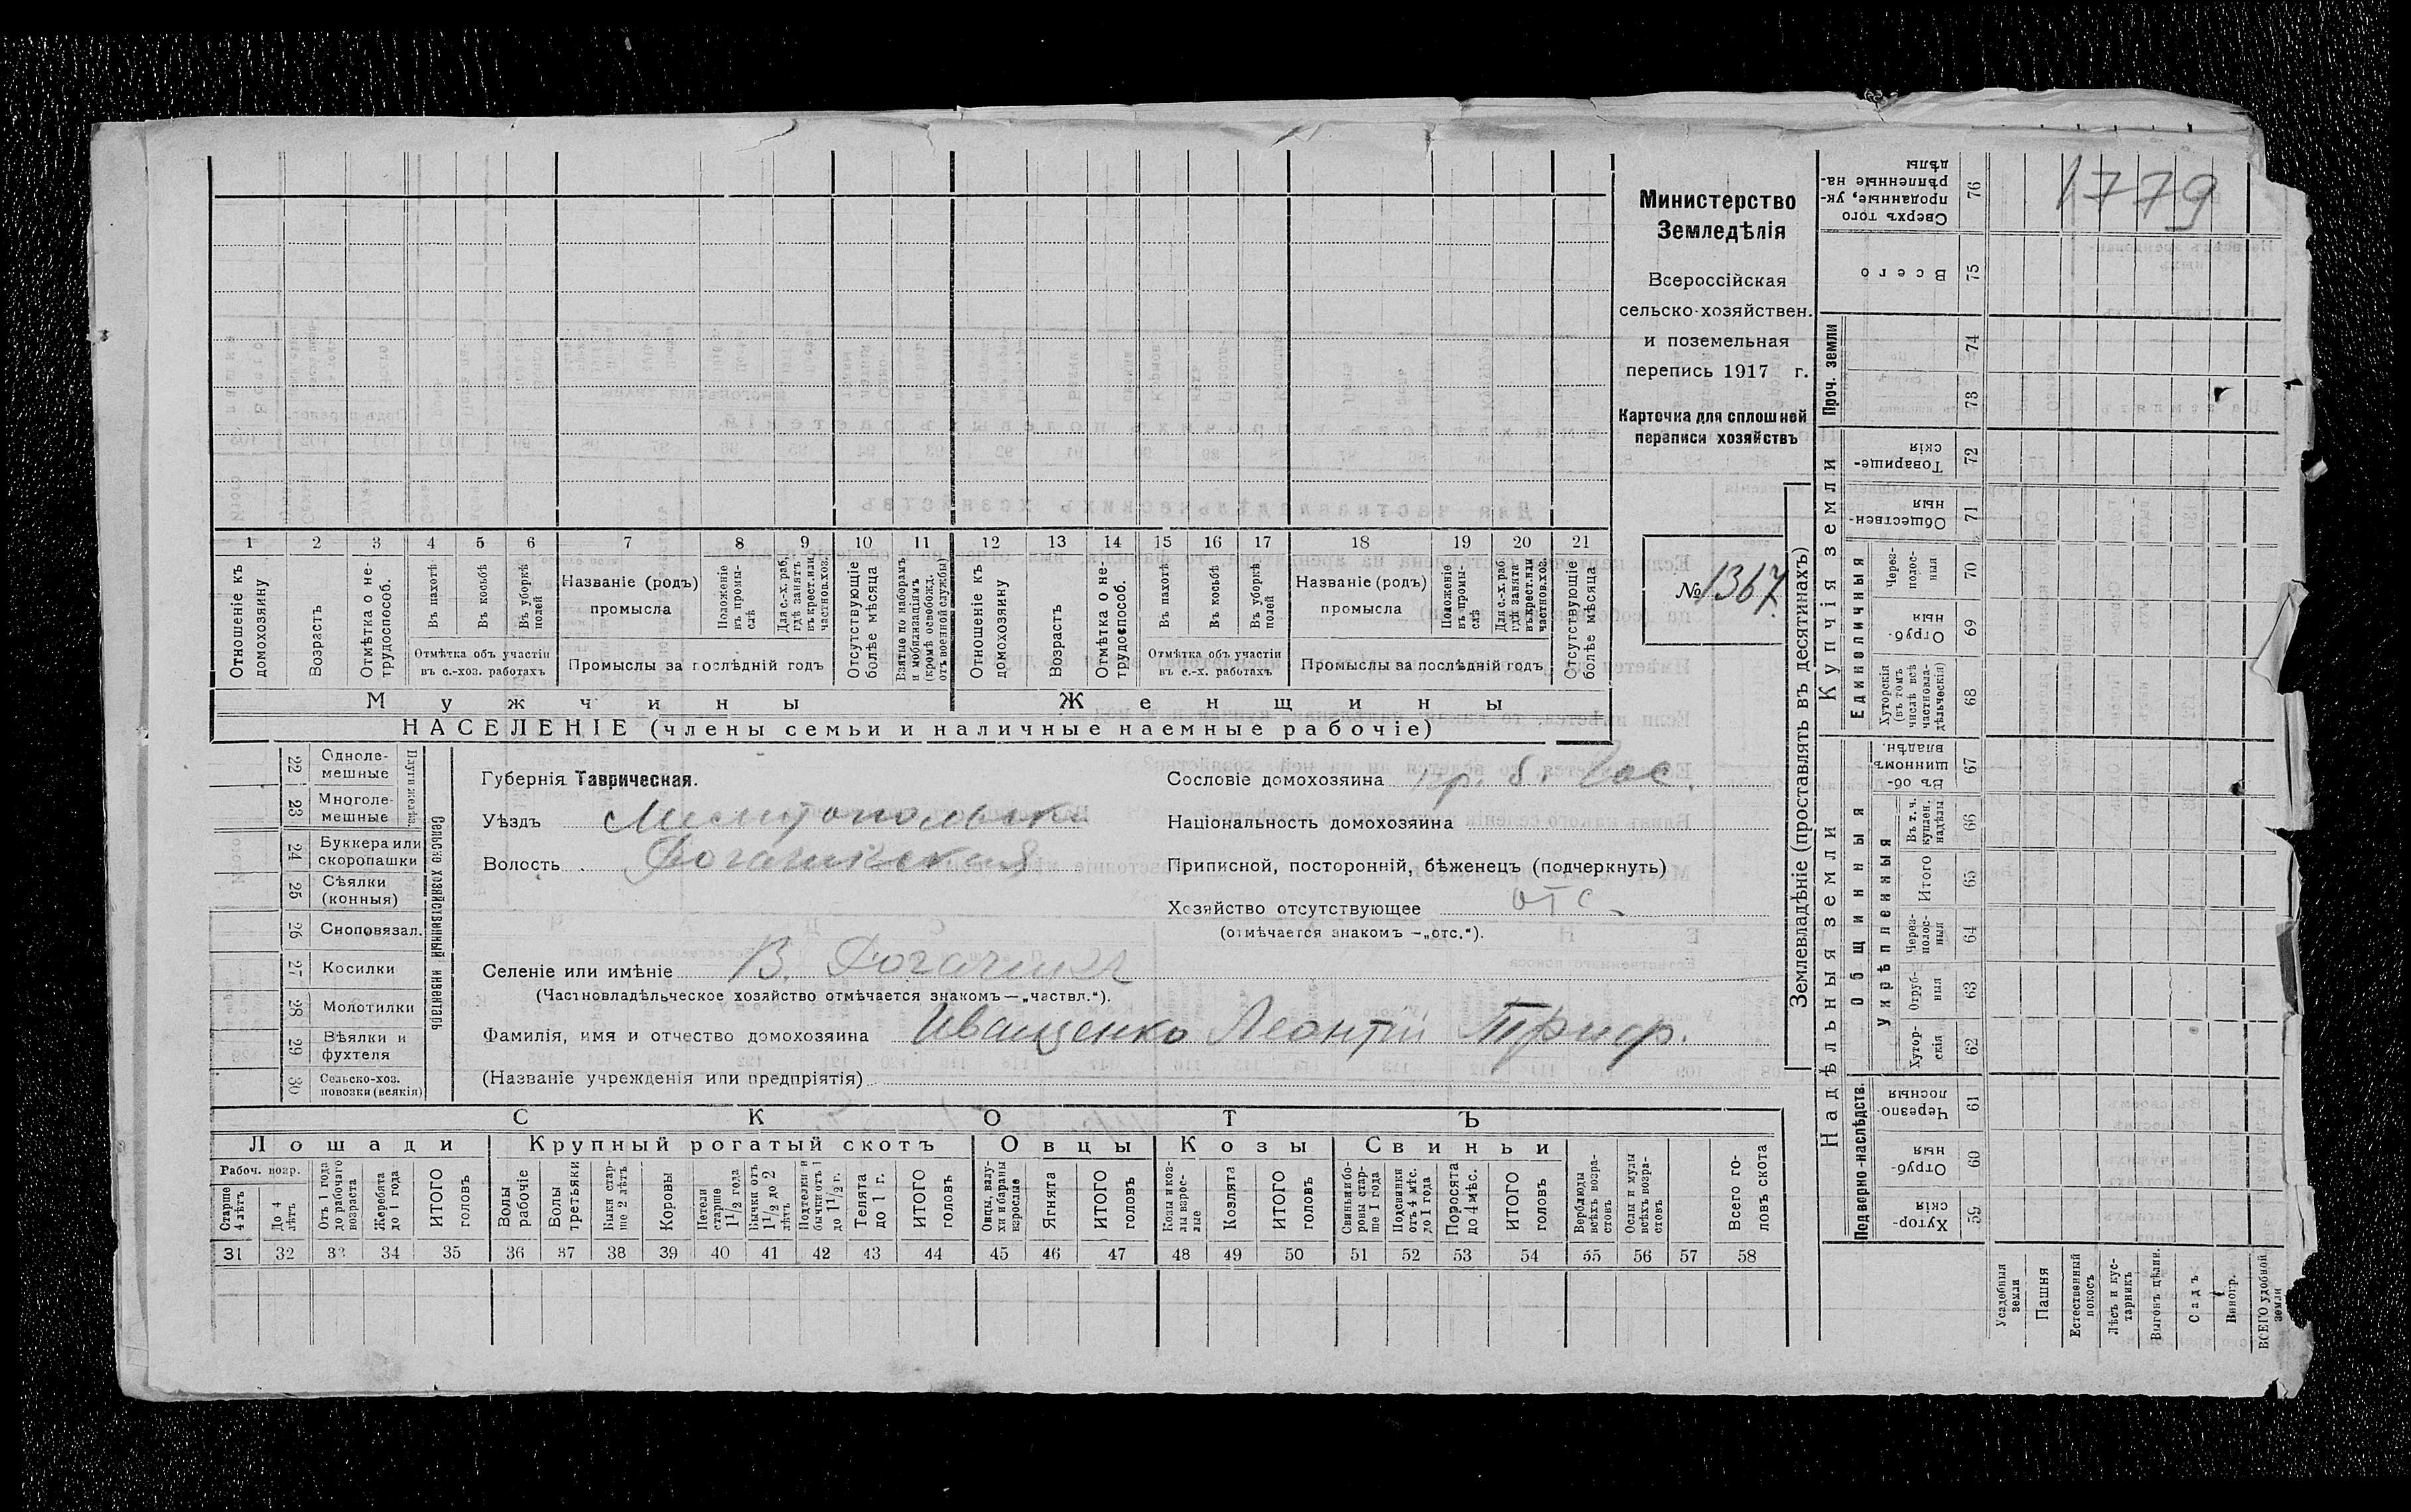 1779
Министерство
Земледѣлія
Всероссійская
сельско-хозяйствен.
и поземельная
перепись 1917 г.
Карточка для сплошной
переписи хозяйствъ
№ 1367
1 2 3 4 5 6 7 8 9 10 11 12 13 14 15 16 17 18 19 20 21
Отношеніе къ домохозяину
Возрастъ
Отмѣтка о не-трудоспособ.
Въ пахотѣ
Въ косьбѣ
Въ уборкѣ полей
Отмѣтка объ участіи
въ с.-хоз. работахъ
Названіе (родъ)
промысла
Положеніе въ промы-слѣ
Для с.-х. раб. гдѣ занятъ въ крест. или частнов. хоз.
Промыслы за послѣдній годъ
Отсутствующіе болѣе мѣсяца
Взятые по наборамъ и мобилизаціямъ (кромѣ освобожд. отъ военной службы)
Отношеніе къ домохозяину
Возрастъ
Отмѣтка о не-трудоспособ.
Въ пахотѣ
Въ косьбѣ
Въ уборкѣ полей
Отмѣтка объ участіи
въ с.-х. работахъ
Названіе (родъ)
промысла
Положеніе въ промы-слѣ
Для с.-х. раб. гдѣ занята въ крест. или частнов. хоз.
Промыслы за послѣдній годъ
Отсутствующіе болѣе мѣсяца
Мужчины Женщины
НАСЕЛЕНІЕ (члены семьи и наличные наемные рабочіе)
Сельско хозяйственный инвентарь
Плуги желѣз.
22 Одноле-мешные
23 Многоле-мешные
24 Буккера или скоропашки
25 Сѣялки (конныя)
26 Сноповязал.
27 Косилки
28 Молотилки
29 Вѣялки и фухтеля
30 Сельско-хоз. повозки (всякія)
Губернія Таврическая.
Уѣздъ Мелитопольск
Волость Рогачикская
Селеніе или имѣніе В. Рогачикъ
(Частновладѣльческое хозяйство отмѣчается знакомъ—„частвл.“).
Фамилія, имя и отчество домохозяина Иващенко Леонтій Триф.
(Названіе учрежденія или предпріятія)
Сословіе домохозяина кр. б. Гос.
Національность домохозяина
Приписной, посторонній, бѣженецъ (подчеркнуть)
Хозяйство отсутствующее отс.
(отмѣчается знакомъ —„отс.“).
СКОТЪ
Лошади Крупный рогатый скотъ Овцы Козы Свиньи
Рабоч. возр.
Старше 4 лѣтъ
До 4 лѣтъ
Отъ 1 года до рабочаго возраста
Жеребята до 1 года
ИТОГО головъ
Волы рабочіе
Волы третьяки
Быки стар-ше 2 лѣтъ
Коровы
Нетели старше 1½ года
Бычки отъ 1½ до 2 лѣтъ
Подтелки и бычки отъ 1 до 1½ г.
Телята до 1 г.
ИТОГО головъ
Овцы, валу-хи и бараны взрослые
Ягнята
ИТОГО головъ
Козы и коз-лы взрос-лые
Козлята
ИТОГО головъ
Свиньи и бо-ровы стар-ше 1 года
Подсвинки отъ 4 мѣс. до 1 года
Поросята до 4 мѣс.
ИТОГО головъ
Верблюды всѣхъ возра-стовъ
Ослы и мулы всѣхъ возра-стовъ
Всего го-ловъ скота
31 32 33 34 35 36 37 38 39 40 41 42 43 44 45 46 47 48 49 50 51 52 53 54 55 56 57 58
Землевладѣніе (проставлять въ десятинахъ)
Надѣльныя земли
Подворно-наслѣдств.
Хутор-скія 59
Отруб-ныя 60
Черезпо-лосныя 61
Общинныя
Укрѣпленныя
Хутор-скія 62
Отруб-ныя 63
Через-полос-ныя 64
Итого 65
Въ т. ч. куплен. надѣлы 66
Въ об-шинномъ владѣн. 67
Купчія земли
Единоличныя
Хуторскія (въ томъ числѣ всѣ частновла-дѣльческія) 68
Отруб-ныя 69
Через-полос-ныя 70
Обществен-ныя 71
Товарище-скія 72
Проч. земли
73
74
Всего 75
Сверхъ того проданные, ук-рѣпленные на-дѣлы 76
Усадебныя земли
Пашня
Естественный покосъ
Лѣсъ и кус-тарникъ
Выгонъ цѣлин.
Садъ
Виногр.
ВСЕГО удобной земли